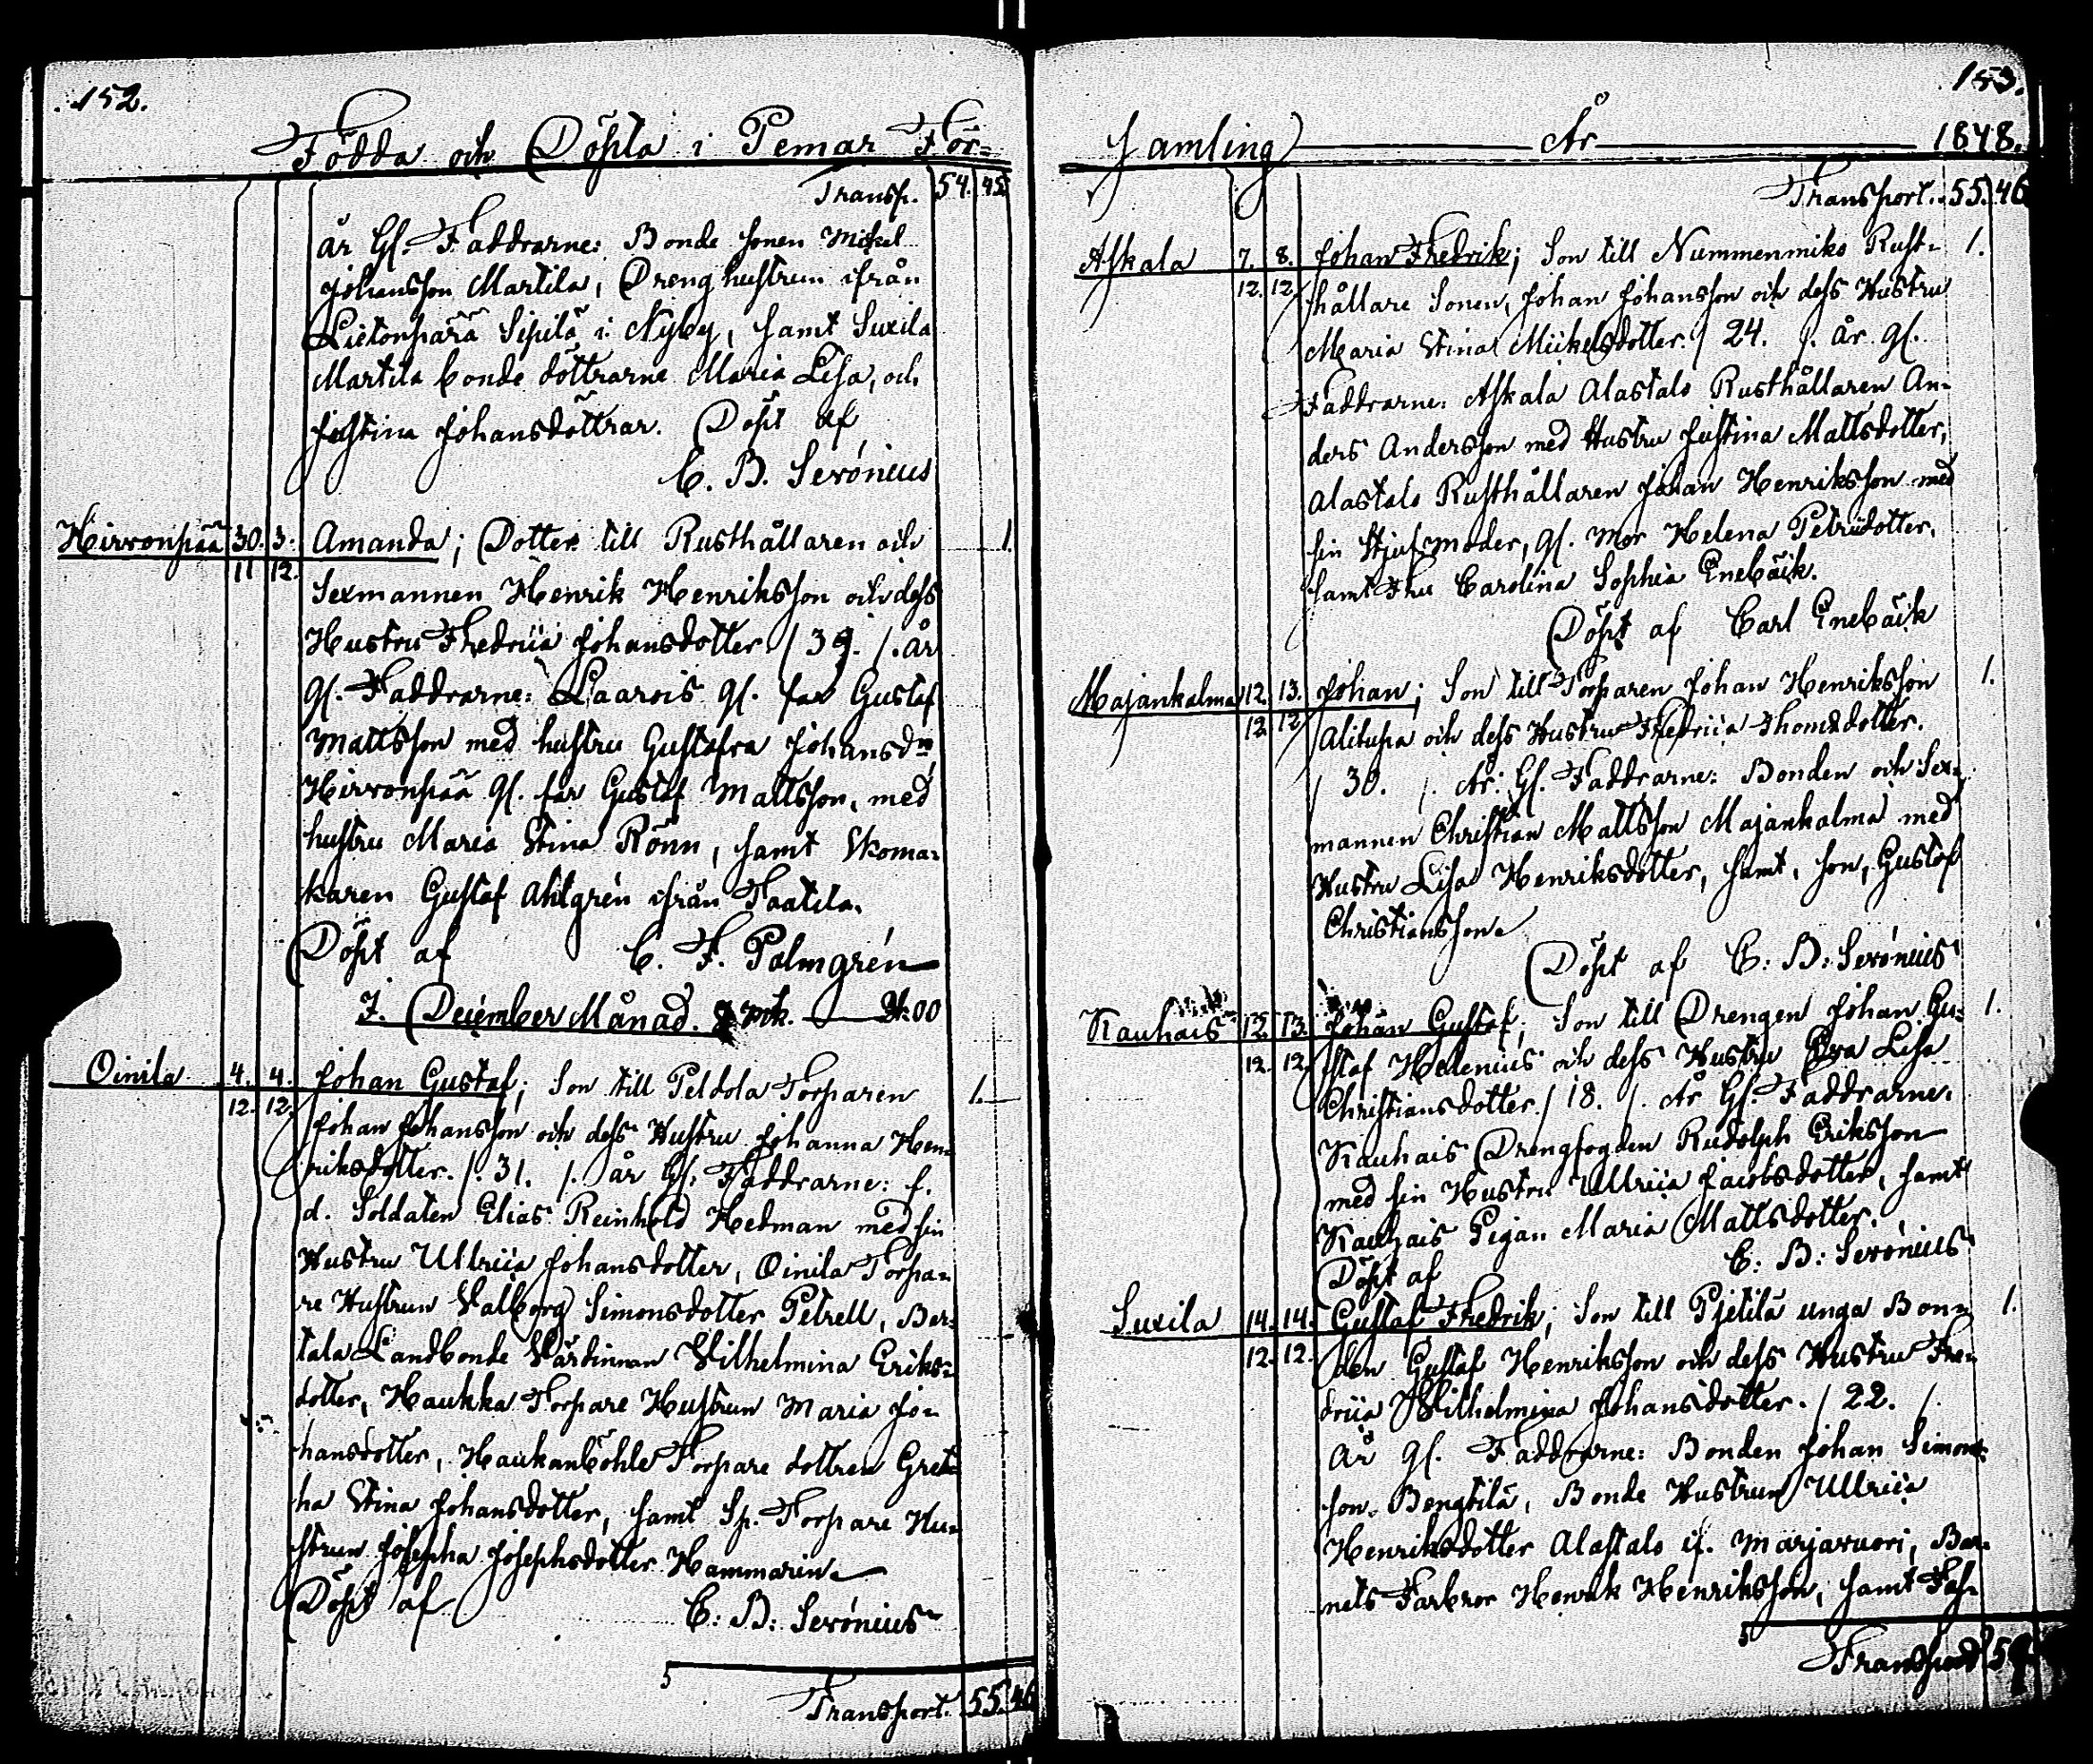 152.
Födda och Döpta i Pemar För=
Transp. 54. 45.
år Gl. Faddrarne: Bonde sonen Mickel
Johansson Martila, Dreng hustrun ifrån
Lietonpärä Sipilä i Nyby, samt Suxila
Martila bonde döttrarne Maria Lisa, och
Justina Johansdöttrar. Döpt af
C. B. Serónius
Hirvonpää 30. 3. Amanda; Dotter till Rusthållaren och 1.
11 12. Sexmannen Henrik Henriksson och dess
Hustru Fredrica Johansdotter / 39. /. år
gl. Faddrarne: Laarois gl. far Gustaf
Mattsson med hustru Gustafva Johansd:r
Hirvonpää gl. far Gustaf Mattsson, med
hustru Maria Stina Rönn, samt Skoma=
karen Gustaf Ahlgrén ifrån Taatila.
Döpt af C. F. Palmgrén
I. December Månad.
Oinila 4. 4. Johan Gustaf; Son till Peldola Torparen 1.
12. 12. Johan Johansson och dess Hustru Johanna Hen=
riksdotter. /. 31. /. år Gl. Faddrarne: f.
d. Soldaten Elias Reinhold Hedman med sin
Hustru Ullrica Johansdotter, Oinila Torpa=
re Hustrun Valborg Simonsdotter Petrell, Ber=
tala Landbonde Värdinnan Wilhelmina Eriks=
dotter, Haukka Torpare Hustrun Maria Jo=
hansdotter, Haukanböhle Torpare dottren Gret=
ha Stina Johansdotter, samt Sp. Torpare Hu=
strun Josepha Josephsdotter Hammarin.
Döpt af C: B: Serónius
5
Transport. 55. 46
153.
Samling År 1848.
Transport. 55. 46
Askala 7. 8. Johan Fredrik; Son till Nummenmiko Rust= 1.
12. 12. hållare Sonen, Johan Johansson och dess Hustru
Maria Stina Mickelsdotter. / 24. /. år gl.
Faddrarne: Askala Alastalo Rusthållaren An=
ders Andersson med Hustru Justina Mattsdotter,
Alastalo Rusthållaren Johan Henriksson med
sin Stjufmoder, gl. Mor Helena Petridotter,
samt Fru Carolina Sophia Enebäck.
Döpt af Carl Enebäck
Majankalma 12. 13. Johan; Son till Torparen Johan Henriksson 1.
12 12 Alitupa och dess Hustru Fredrica Thomsdotter.
/ 30. /. År: Gl. Faddrarne: Bonden och Sex=
mannen Christian Mattsson Majankalma med
Hustru Lisa Henriksdotter, samt, son, Gustaf
Christiansson.
Döpt af C: B: Serónius
Kauhais 12. 13. Johan Gustaf; Son till Drengen Johan Gu= 1.
12. 12. staf Helenius och dess Hustru Eva Lisa
Christiansdotter. / 18. /. År Gl. Faddrarne.
Kauhais Drengfogden Rudolph Eriksson
med sin Hustru Ullrica Jacobsdotter, samt
Kauhais Pigan Maria Mattsdotter.
Döpt af C: B: Serónius
Suxila 14. 14. Gustaf Fredrik; Son till Pjetilä unga Bon= 1.
12. 12. den Gustaf Henriksson och dess Hustru Fre=
drica Wilhelmina Johansdotter. / 22. /.
År gl. Faddrarne: Bonden Johan Simons=
son. Bengtilä, Bonde Hustrun Ullrica
Henriksdotter Alastalo if. Marjavuori, Bar=
nets Farbror Henrik Henriksson, samt Fas=
5
Transport